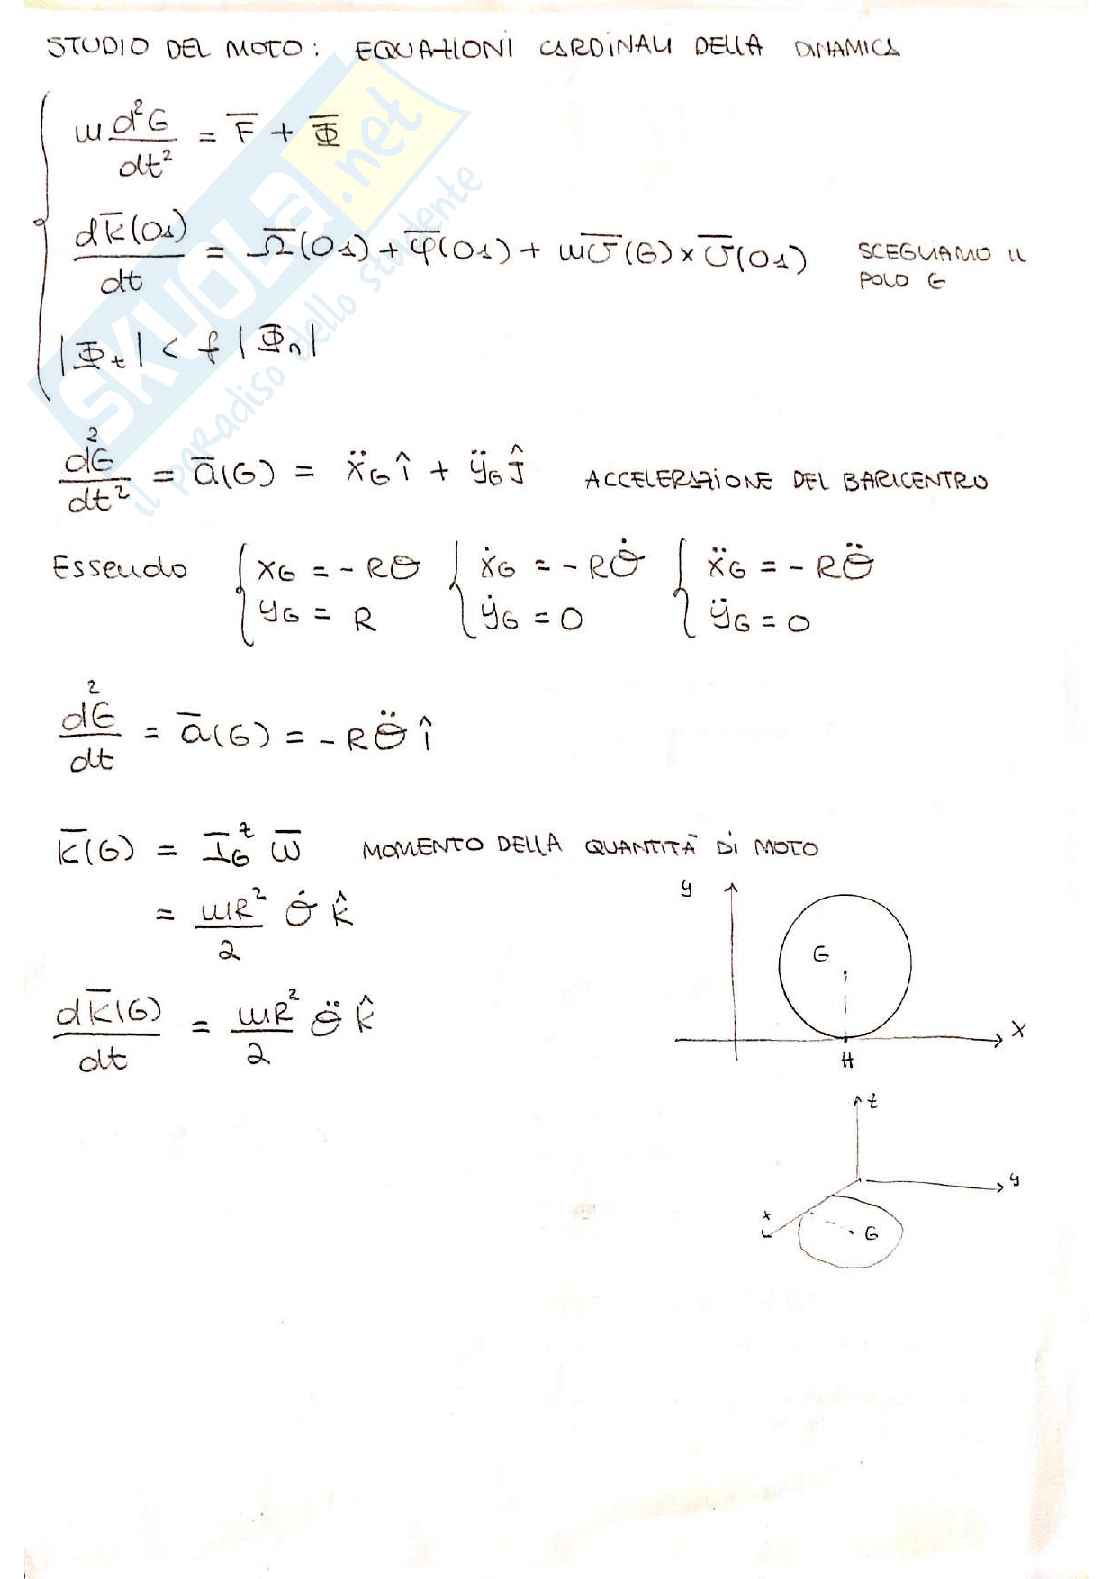 STUDIO DEL MOTO: EQUAZIONI CARDINALI DELLA DINAMICA
m d²G/dt² = F̅ + Φ̅
dK̅(O₁)/dt = Ω̅(O₁) + φ̅(O₁) + m v̅(G) × v̅(O₁) SCEGLIAMO IL POLO G
|Φ̅t| < f |Φ̅n|
d²G/dt² = a̅(G) = ẍG î + ÿG ĵ ACCELERAZIONE DEL BARICENTRO
Essendo { xG = -Rθ { ẋG = -Rθ̇ { ẍG = -Rθ̈
yG = R ẏG = 0 ÿG = 0
d²G/dt = a̅(G) = -Rθ̈ î
K̅(G) = I̅G^z ω̅ MOMENTO DELLA QUANTITÀ DI MOTO
= mR²/2 θ̇ k̂
dK̅(G)/dt = mR²/2 θ̈ k̂
y
G
x
H
z
y
x
G
SKUOLA.net
il paradiso dello studente